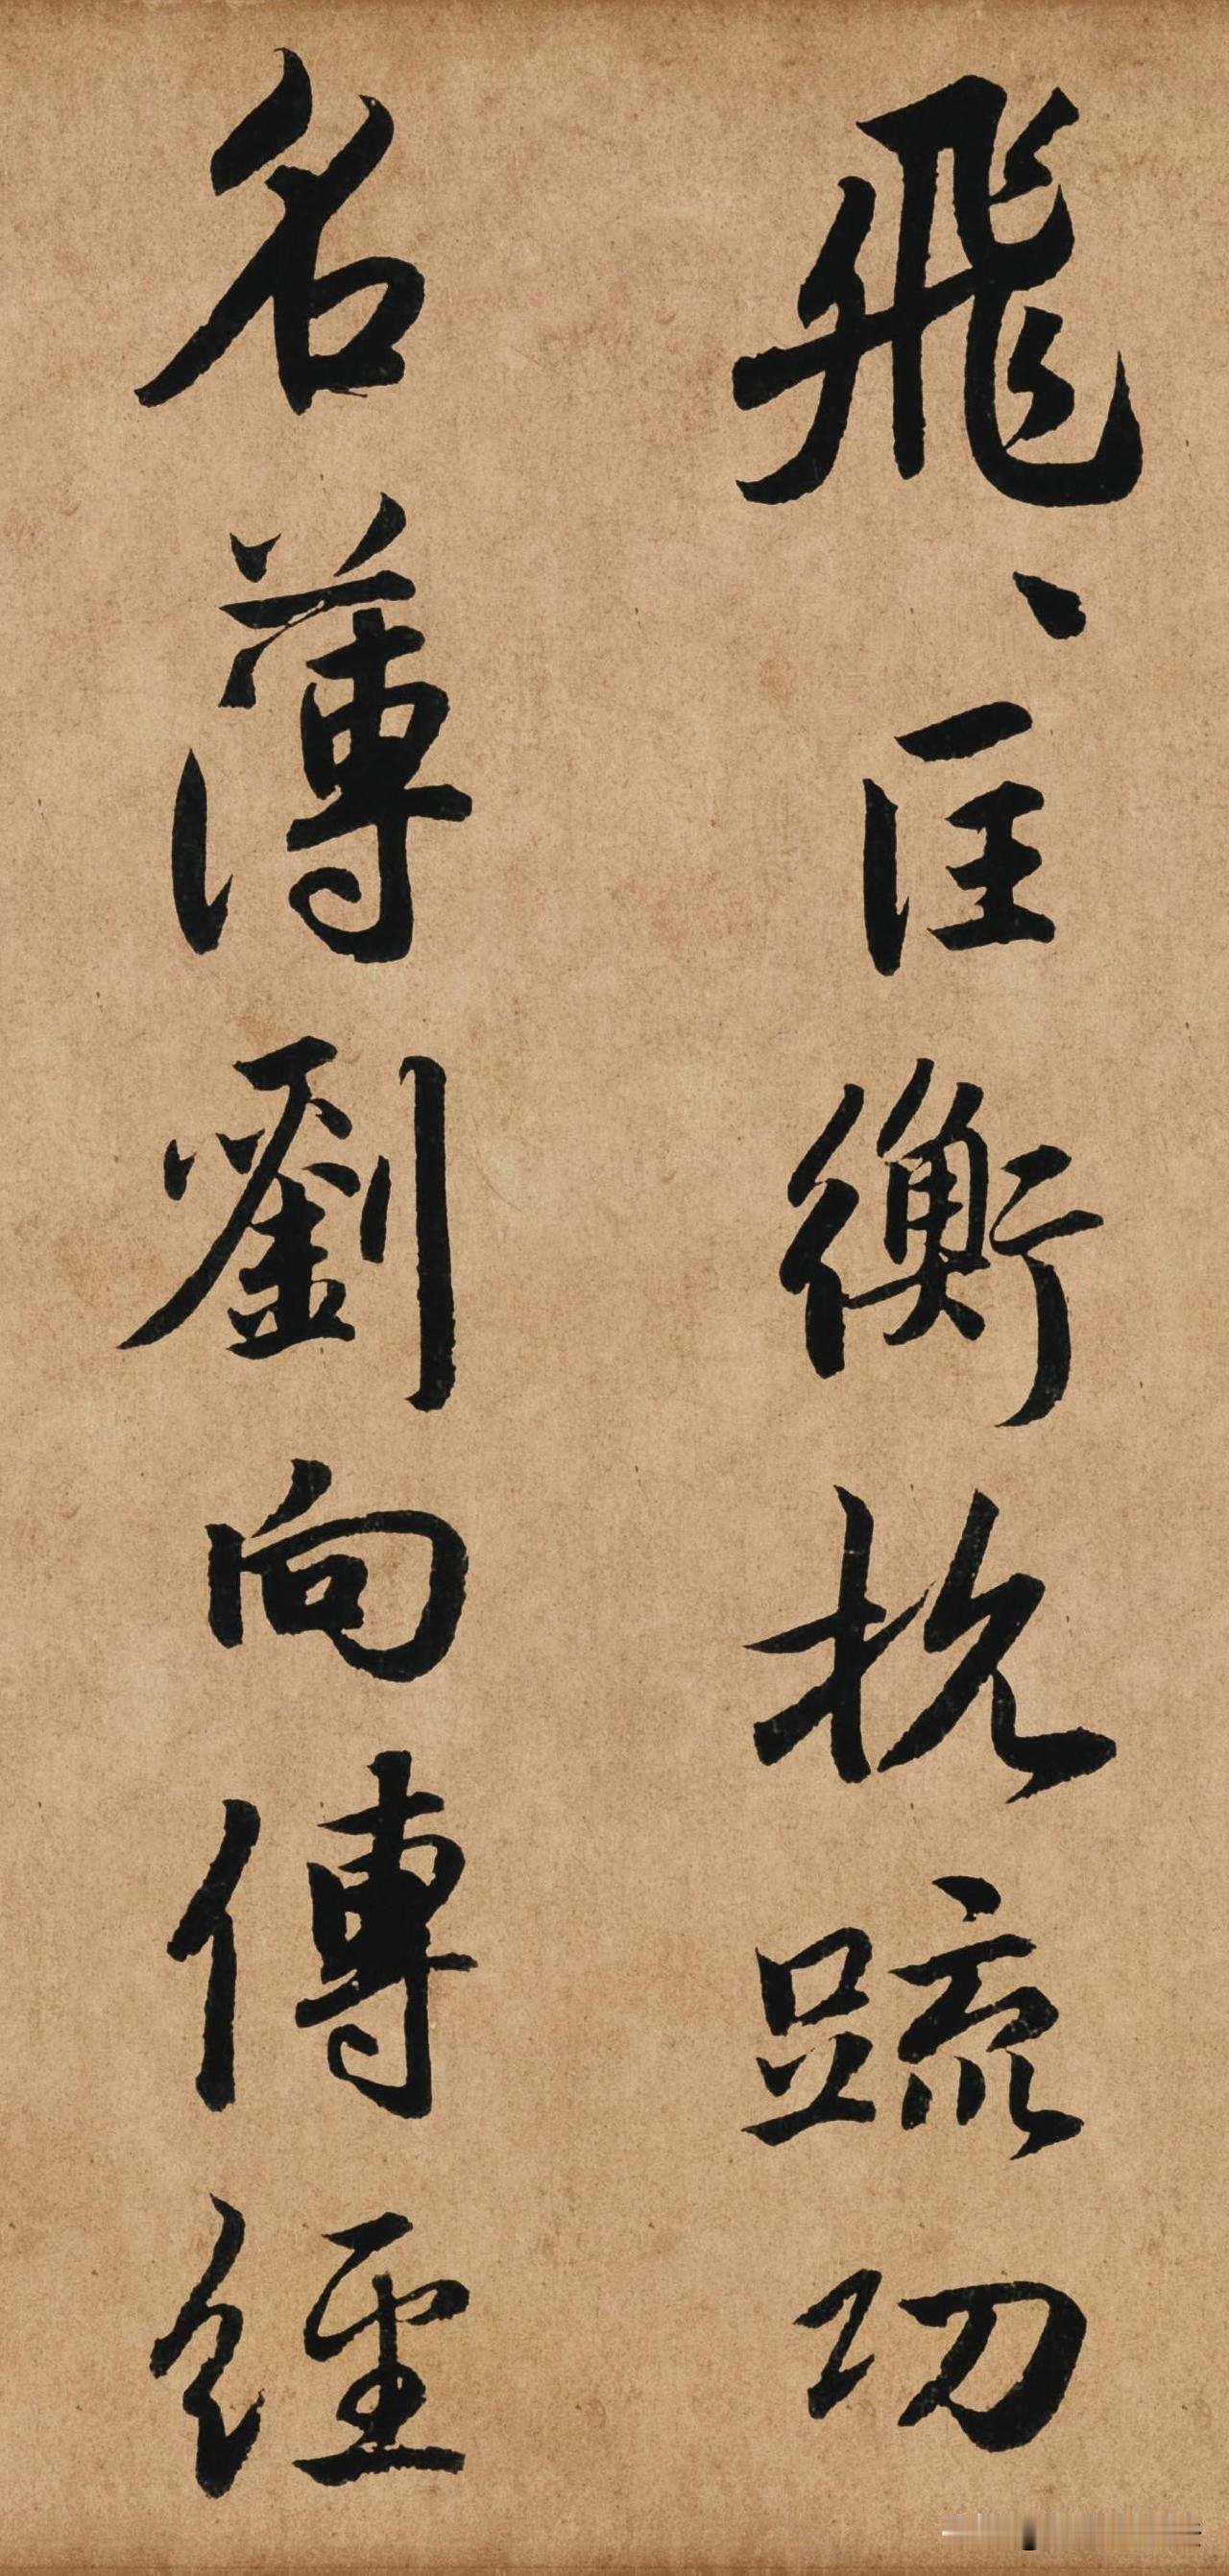 飛、匡衡抗䟽功
名薄劉向傳經